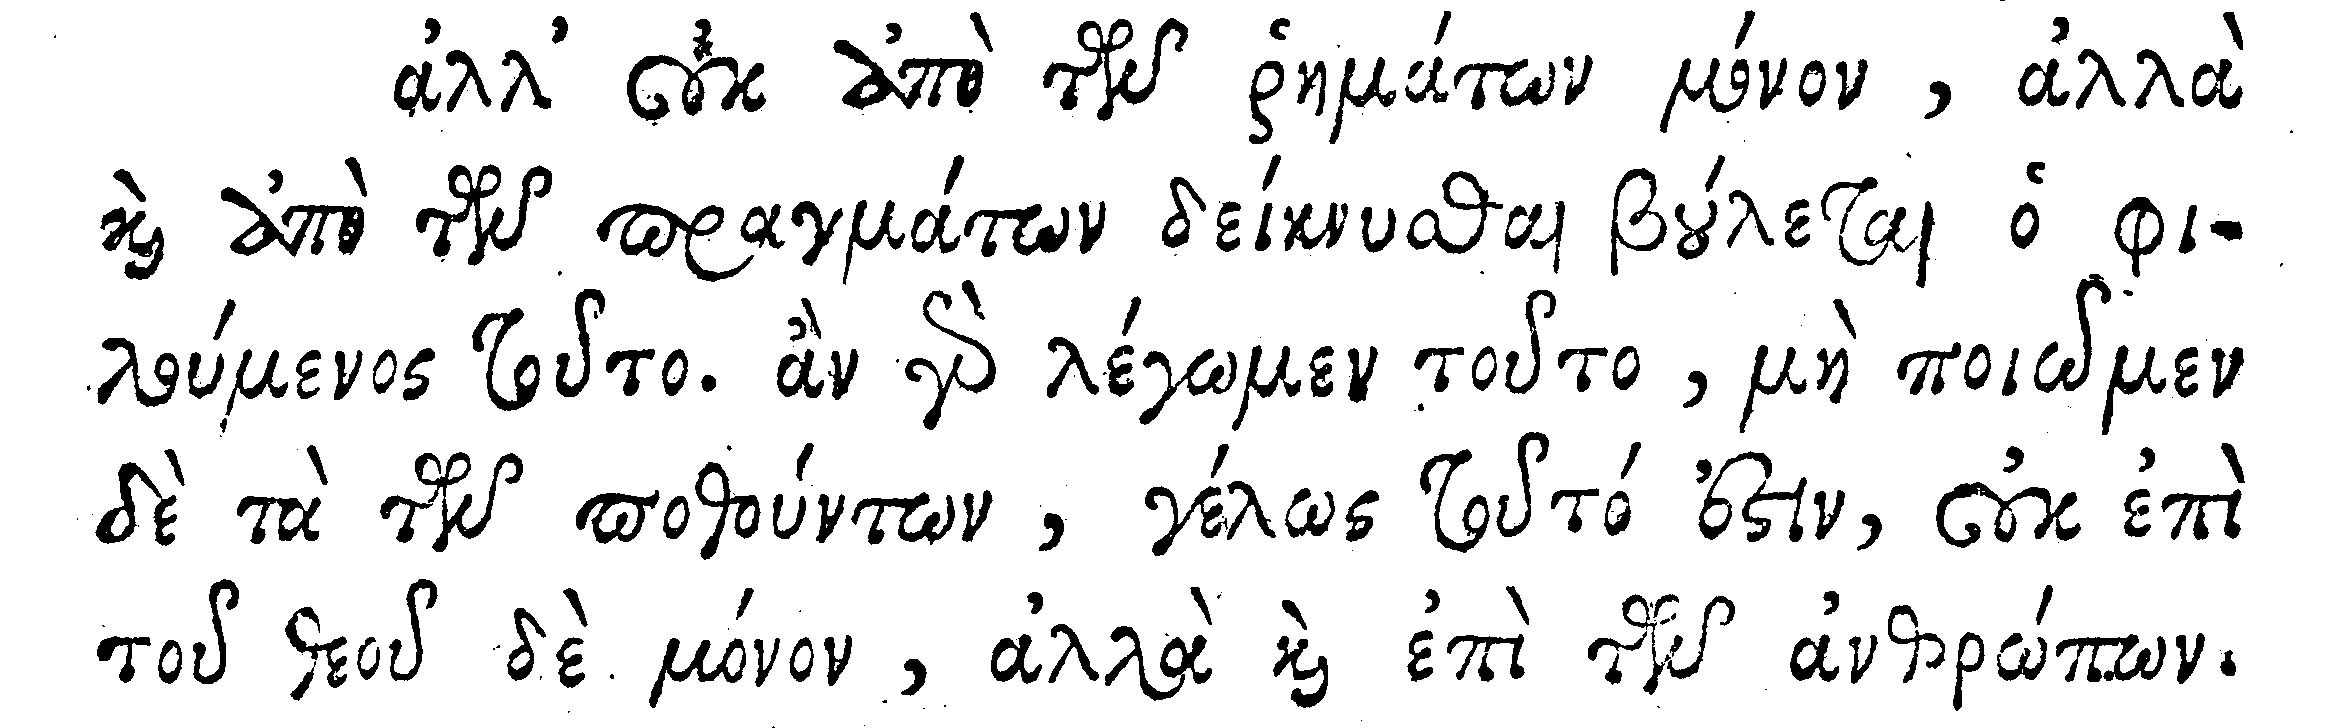 ἀλλ' οὐκ ἀπὸ τῶν ῥημάτων μόνον, ἀλλὰ
καὶ ἀπὸ τῶν πραγμάτων δείκνυσθαι βούλεται ὁ φι-
λούμενος τοῦτο. ἂν γὰρ λέγωμεν τοῦτο, μὴ ποιῶμεν
δὲ τὰ τῶν ποθούντων, γέλως τοῦτό ἐστιν, οὐκ ἐπὶ
τοῦ θεοῦ δὲ μόνον, ἀλλὰ καὶ ἐπὶ τῶν ἀνθρώπων.